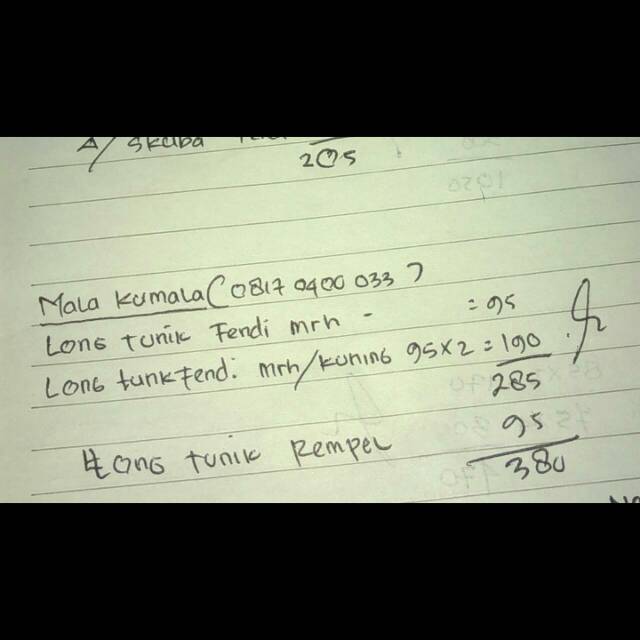 205
Mala Kumala (0817 0400 033)
Long tunik Fendi mrh - = 95
Long tunk Fendi. mrh/kuning 95 x 2 = 190
285
Long tunik Rempel 95
380